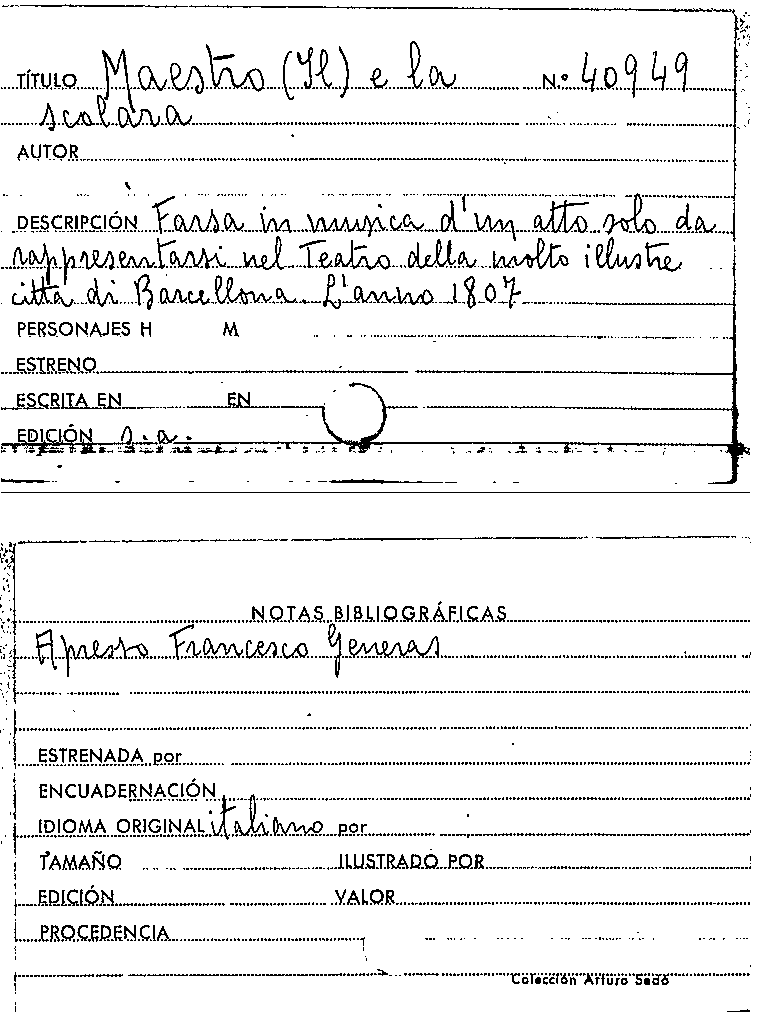 TÍTULO Maestro (Il) e la N.º 40949
scolara
AUTOR
DESCRIPCIÓN Farsa in musica d'un atto solo da
rappresentarsi nel Teatro della molto illustre
città di Barcellona. L'anno 1807
PERSONAJES H M
ESTRENO
ESCRITA EN EN
EDICIÓN s.a.
NOTAS BIBLIOGRÁFICAS
Apresto Francesco Generas
ESTRENADA por
ENCUADERNACIÓN
IDIOMA ORIGINAL italiano por
TAMAÑO ILUSTRADO POR
EDICIÓN VALOR
PROCEDENCIA
Colección Arturo Sedó